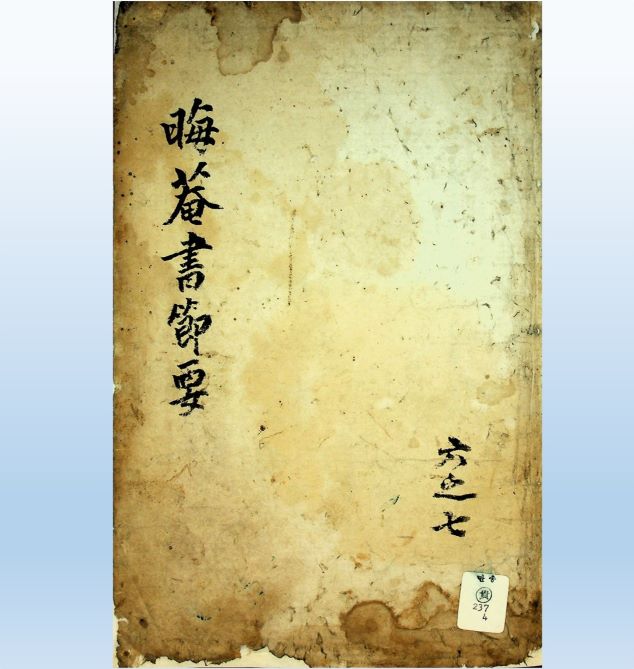 晦菴書節要
六之七
만송
貴
237
4